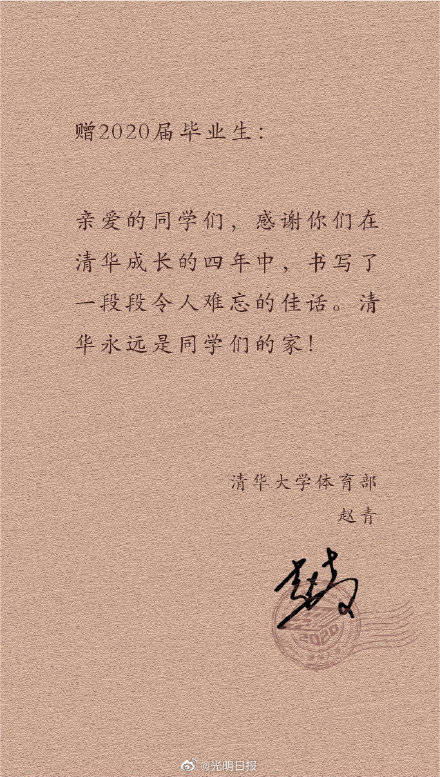 赠2020届毕业生：
亲爱的同学们，感谢你们在
清华成长的四年中，书写了
一段段令人难忘的佳话。清
华永远是同学们的家！
清华大学体育部
赵青
赵青
2020
@光明日报